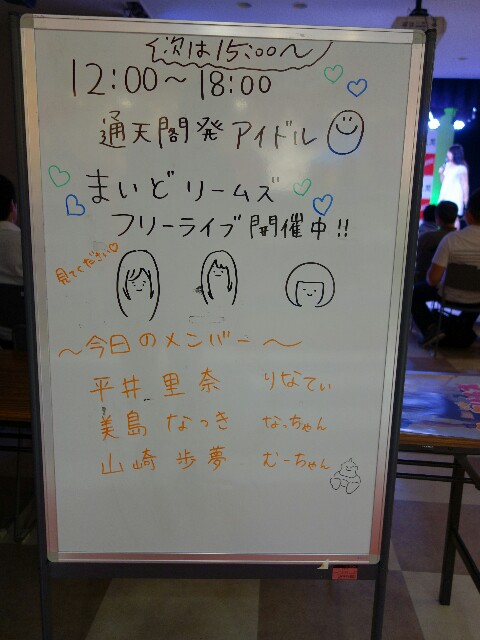 次は15:00〜
12:00〜18:00
通天閣発アイドル
まいどリームズ
フリーライブ開催中!!
見てください♡
〜今日のメンバー〜
平井里奈 りなてぃ
美島なつき なっちゃん
山崎歩夢 むーちゃん